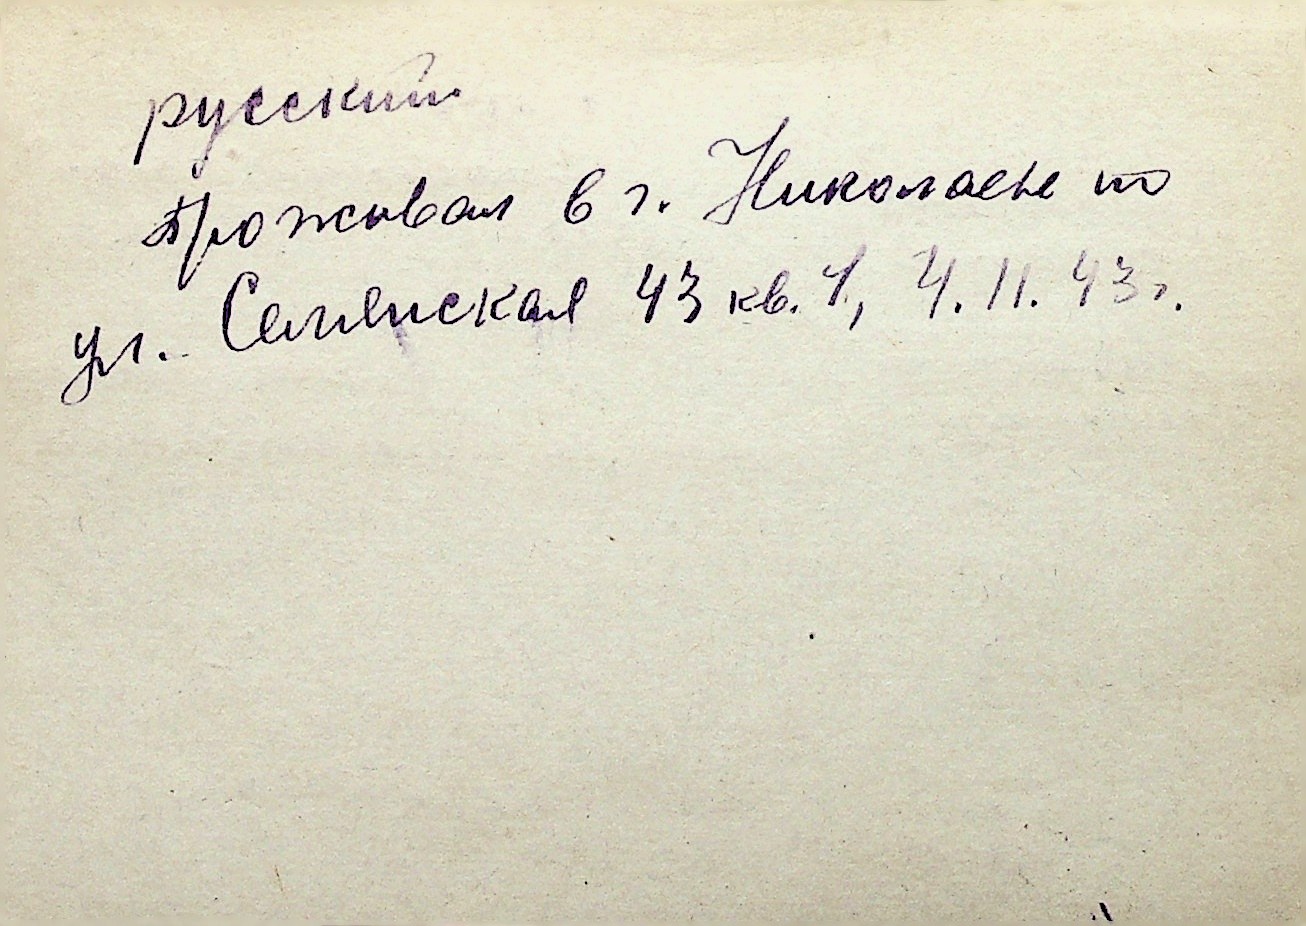 русский
Проживал в г. Николаеве по
ул. Селянская 43 кв. 4, 4.11.43г.